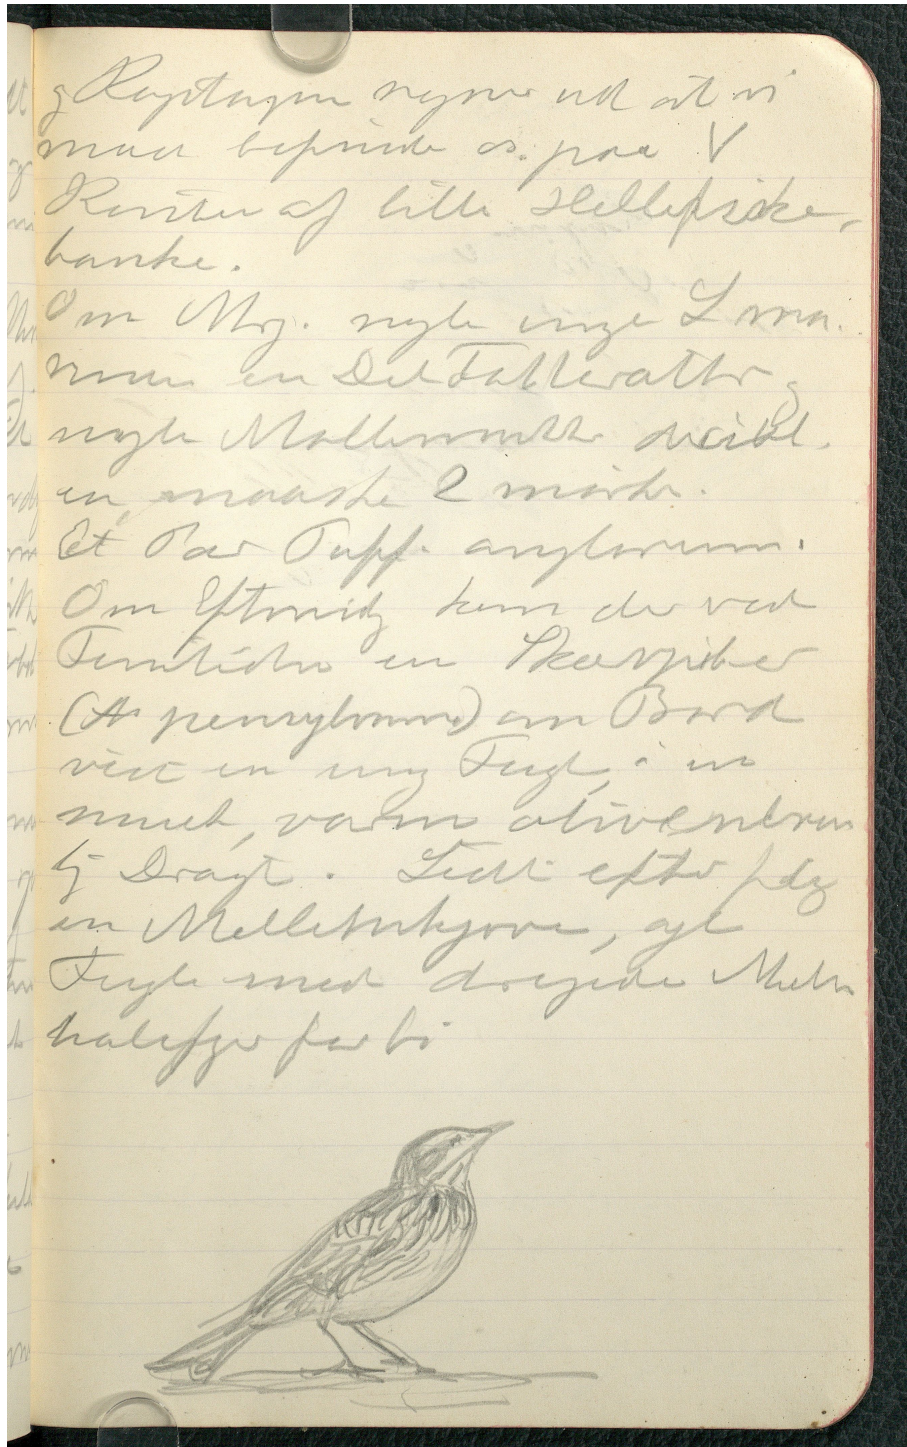 og Kaptajnen regner ud at vi
maa befinde os paa V
Kanten af lille Hellefiske-
banke.
Om Mrg. nogle unge L. ma-
rinus en Del Tatteratter og
nogle Mallemukker deribl.
en, maaske 2 mörke.
Et Par Puff. anglorum.
Om Eftmidg kom der ved
Femtiden en Skærpiber
(A. pensylvanicus) om Bord
vist en ung Fugl, i en
smuk, varm olivenbrun
lig Dragt. Lidt efter flög
en Mellemkjove, ogl
Fugle med drejede Midt
halefjer forbi